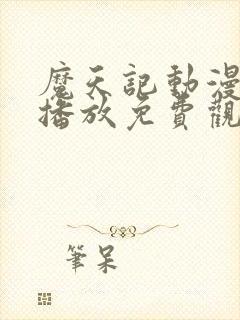 魔天記動漫
播放免費觀
筆呆